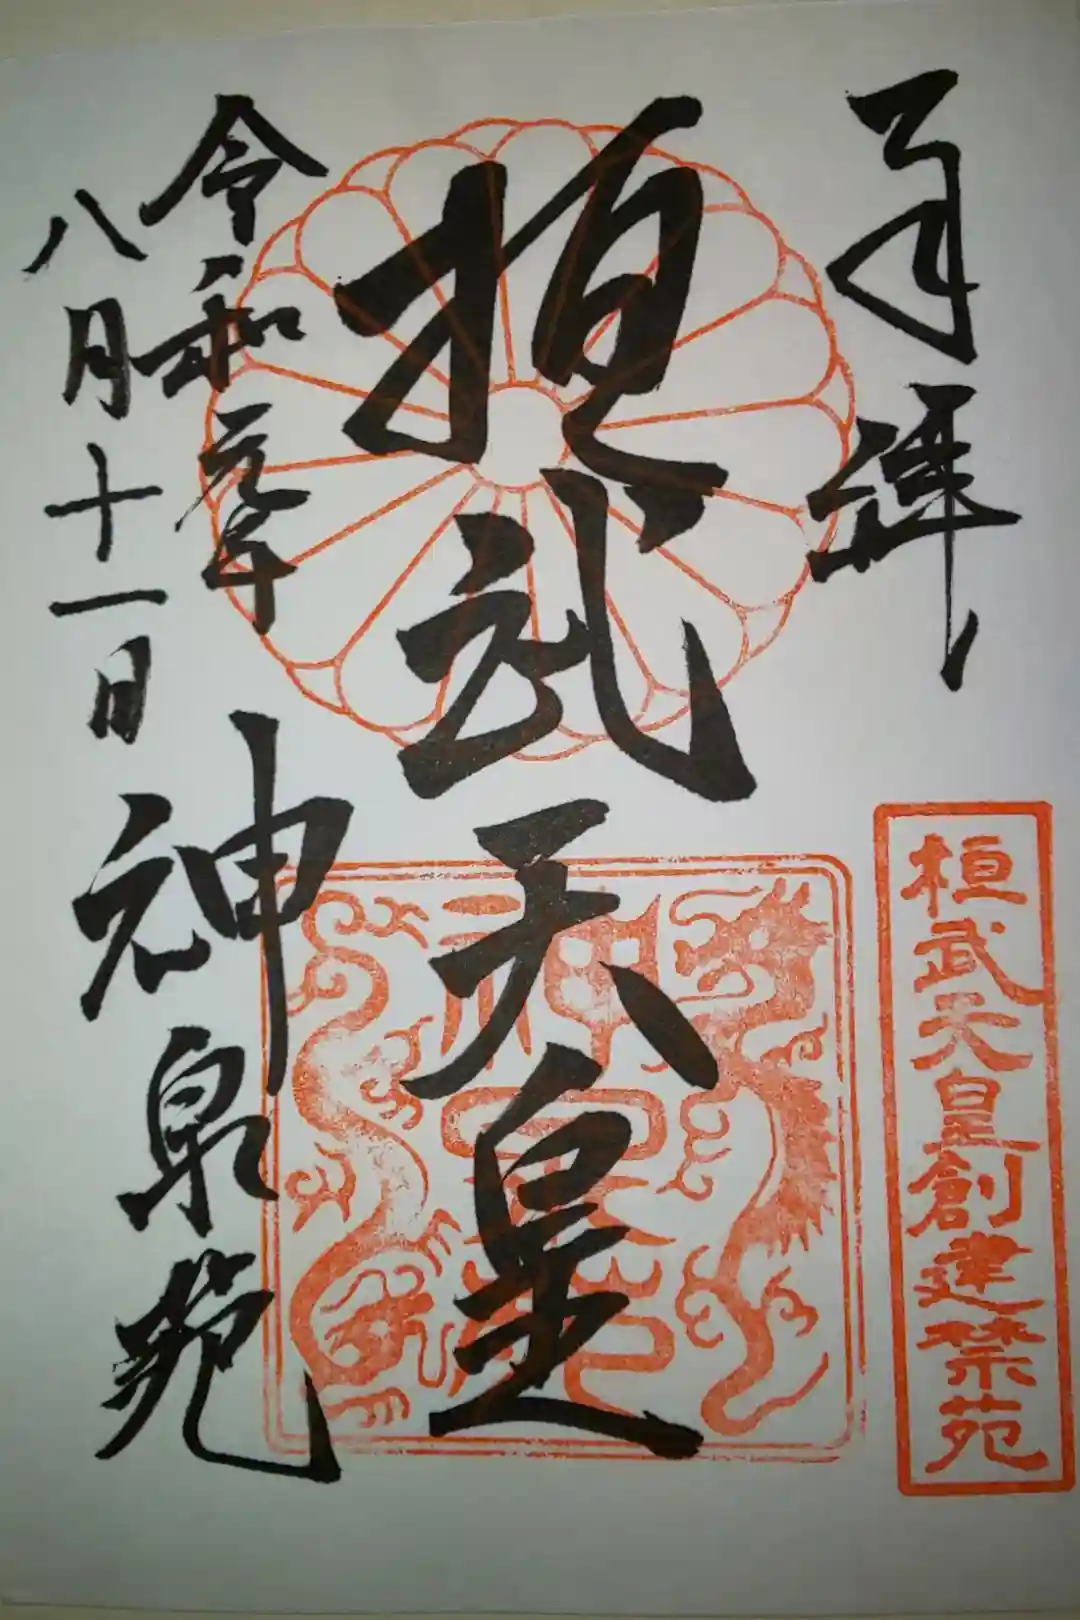 奉拝
桓武天皇創建禁苑
桓武天皇
神泉苑
令和元年
八月十一日
神泉苑